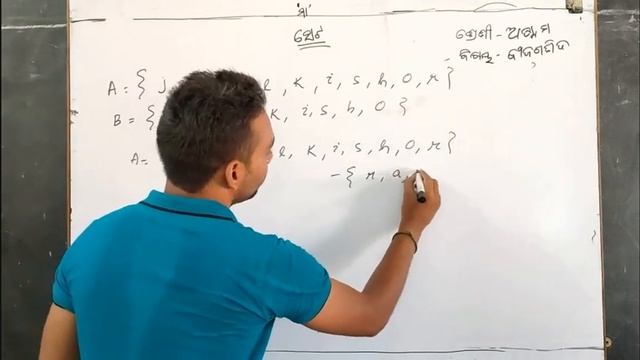 ମା
ସେଟ୍
ଶ୍ରେଣୀ - ଅଷ୍ଟମ
ବିଷୟ - ବୀଜଗଣିତ
A = { j l, k, i, s, h, o, r }
B = { k, i, s, h, o }
A = l, k, i, s, h, o, r }
- { r, a,